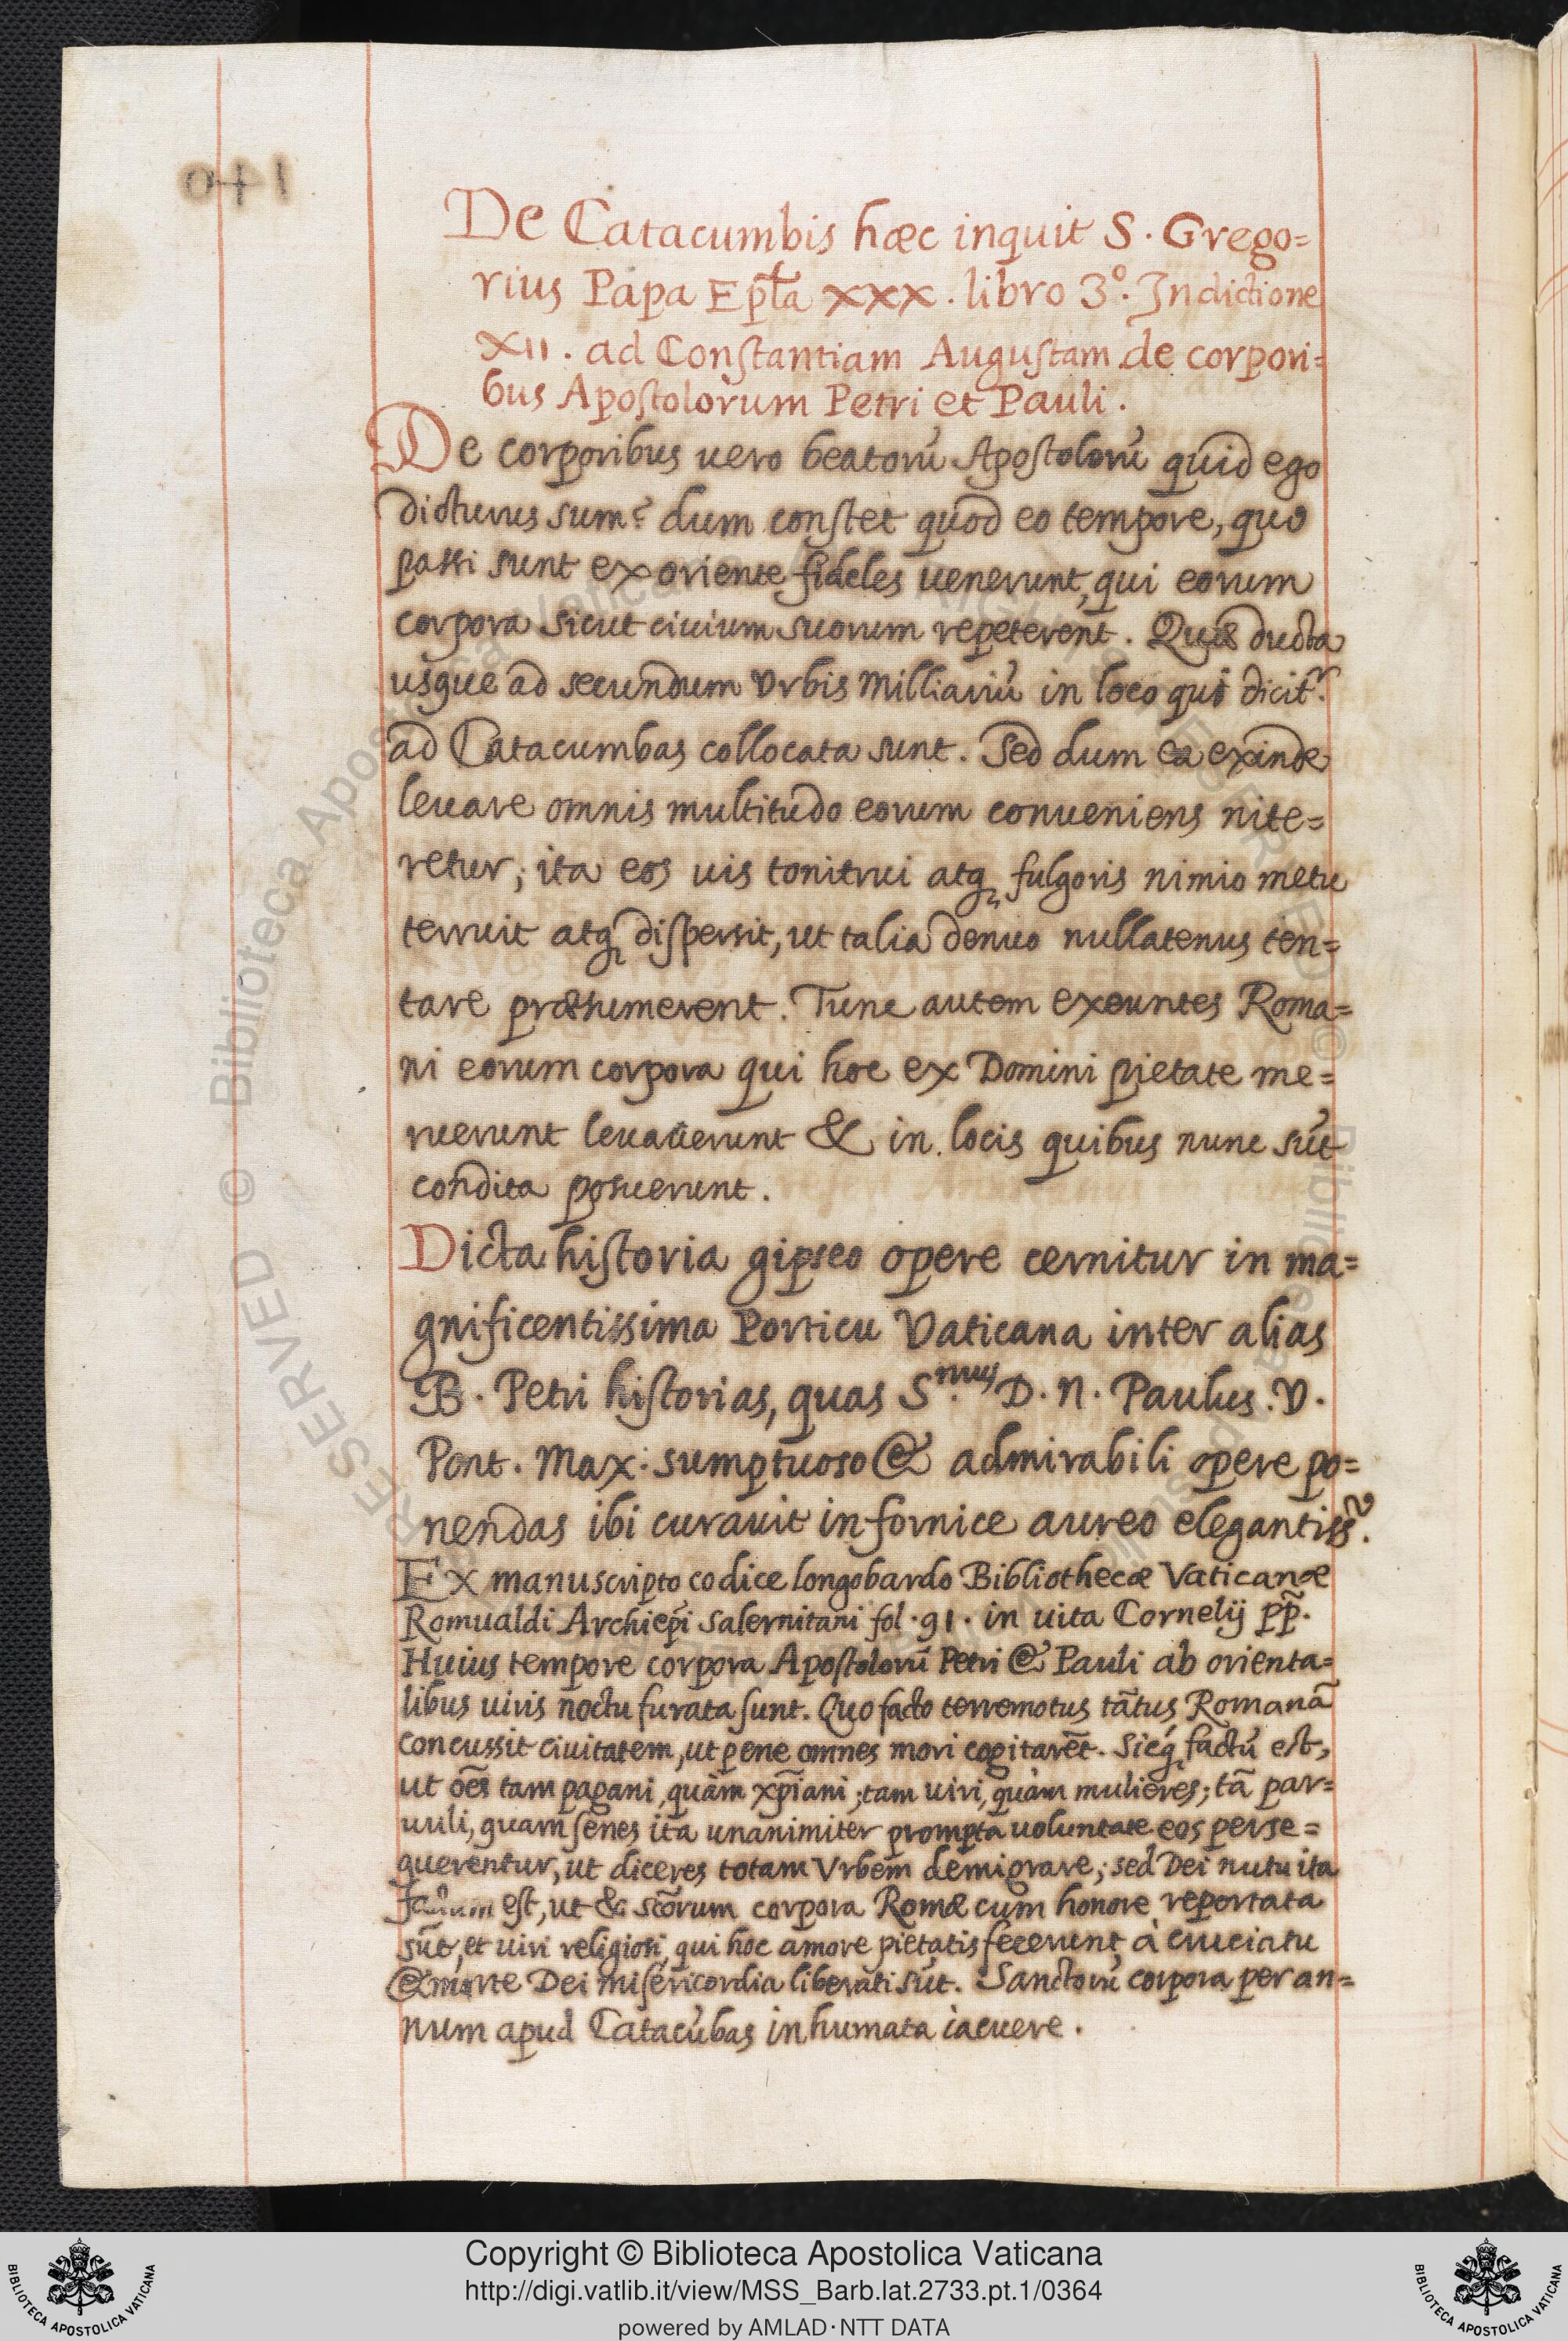 De Catacumbis hæc inquit S. Grego=
rius Papa Ep̃la XXX. libro 3º. Indictione
XII. ad Constantiam Augustam de corpori=
bus Apostolorum Petri et Pauli.
De corporibus uero beatorũ Apostolorũ quid ego
dicturus sum? dum constet quod eo tempore, quo
passi sunt ex oriente fideles uenerunt, qui eorum
corpora sicut ciuium suorum repeterent. Quæ ducta
usque ad secundum Vrbis Milliariũ in loco qui dicitʳ.
ad Catacumbas collocata sunt. Sed dum ea exinde
leuare omnis multitudo eorum conueniens nite=
retur, ita eos uis tonitrui atq; fulgoris nimio metu
terruit atq; dispersit, ut talia denuo nullatenus ten=
tare præsumerent. Tunc autem exeuntes Roma=
ni eorum corpora qui hoc ex Domini pietate me=
ruerunt leuauerunt & in locis quibus nunc sũt
condita posuerunt.
Dicta historia gipseo opere cernitur in ma=
gnificentissima Porticu Vaticana inter alias
B. Petri historias, quas S.ᵐᵘˢ D. N. Paulus. V.
Pont. Max: sumptuoso & admirabili opere po=
nendas ibi curauit in fornice aureo elegantiss.º
Ex manuscripto codice longobardo Bibliothecæ Vaticanæ
Romualdi Archiep̃i Salernitani fol. 91. in uita Cornelij pp̃.
Huius tempore corpora Apostolorũ Petri & Pauli ab orienta=
libus uiris noctu furata sunt. Quo facto terremotus tãtus Romanã
concussit ciuitatem, ut pene omnes mori cogitarẽt. Sicq; factũ est,
ut oẽs tam pagani, quàm xp̃iani; tam uiri, quàm mulieres; tã par=
uuli, quam senes ita unanimiter prompta uoluntate eos perse=
querentur, ut diceres totam Vrbem demigrare; sed Dei nutu ita
factum est, ut & sc̃orum corpora Romæ cum honore reportata
sũt, et uiri religiosi, qui hoc amore pietatis fecerunt, à cruciatu
& morte Dei misericordia liberati sũt. Sanctorũ corpora per an=
num apud Catacũbas inhumata iacuere.
140
Copyright © Biblioteca Apostolica Vaticana
http://digi.vatlib.it/view/MSS_Barb.lat.2733.pt.1/0364
powered by AMLAD·NTT DATA
BIBLIOTECA APOSTOLICA VATICANA
BIBLIOTECA APOSTOLICA VATICANA